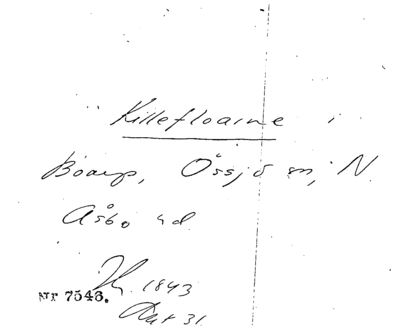 Killefloarne i
Boarp, Össjö sn, N
Åsbo hd
1843
Nr 7543.
31.